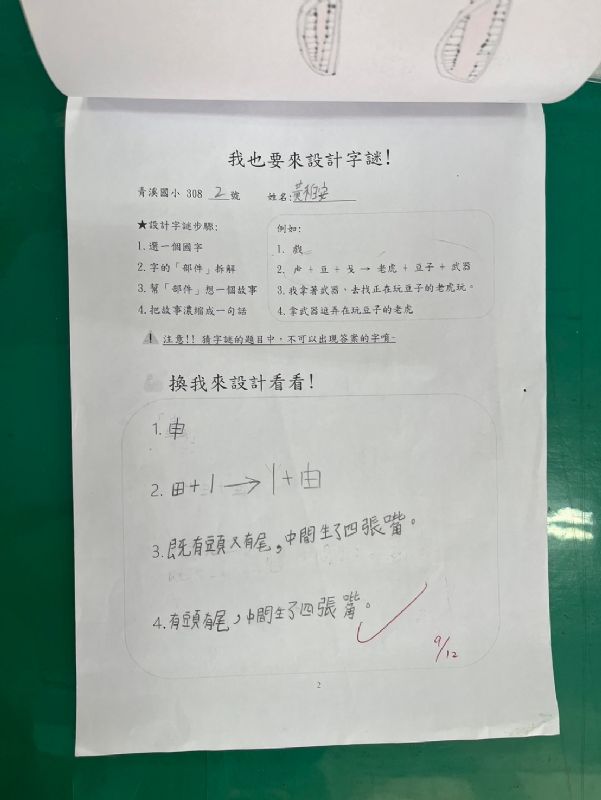 我也要來設計字謎!
青溪國小 308 2 號 姓名:黃
★設計字謎步驟:
1.選一個國字
2.字的「部件」拆解
3.幫「部件」想一個故事
4.把故事濃縮成一句話
例如:
1. 戲
2. 虍 + 豆 + 戈 → 老虎 + 豆子 + 武器
3.我拿著武器,去找正在玩豆子的老虎玩。
4.拿武器逗弄在玩豆子的老虎
注意!! 猜字謎的題目中,不可以出現答案的字唷~
換我來設計看看!
1. 申
2. 田+丨→丨+由
3. 既有頭又有尾,中間生了四張嘴。
4. 有頭有尾,中間生了四張嘴。
9/12
2